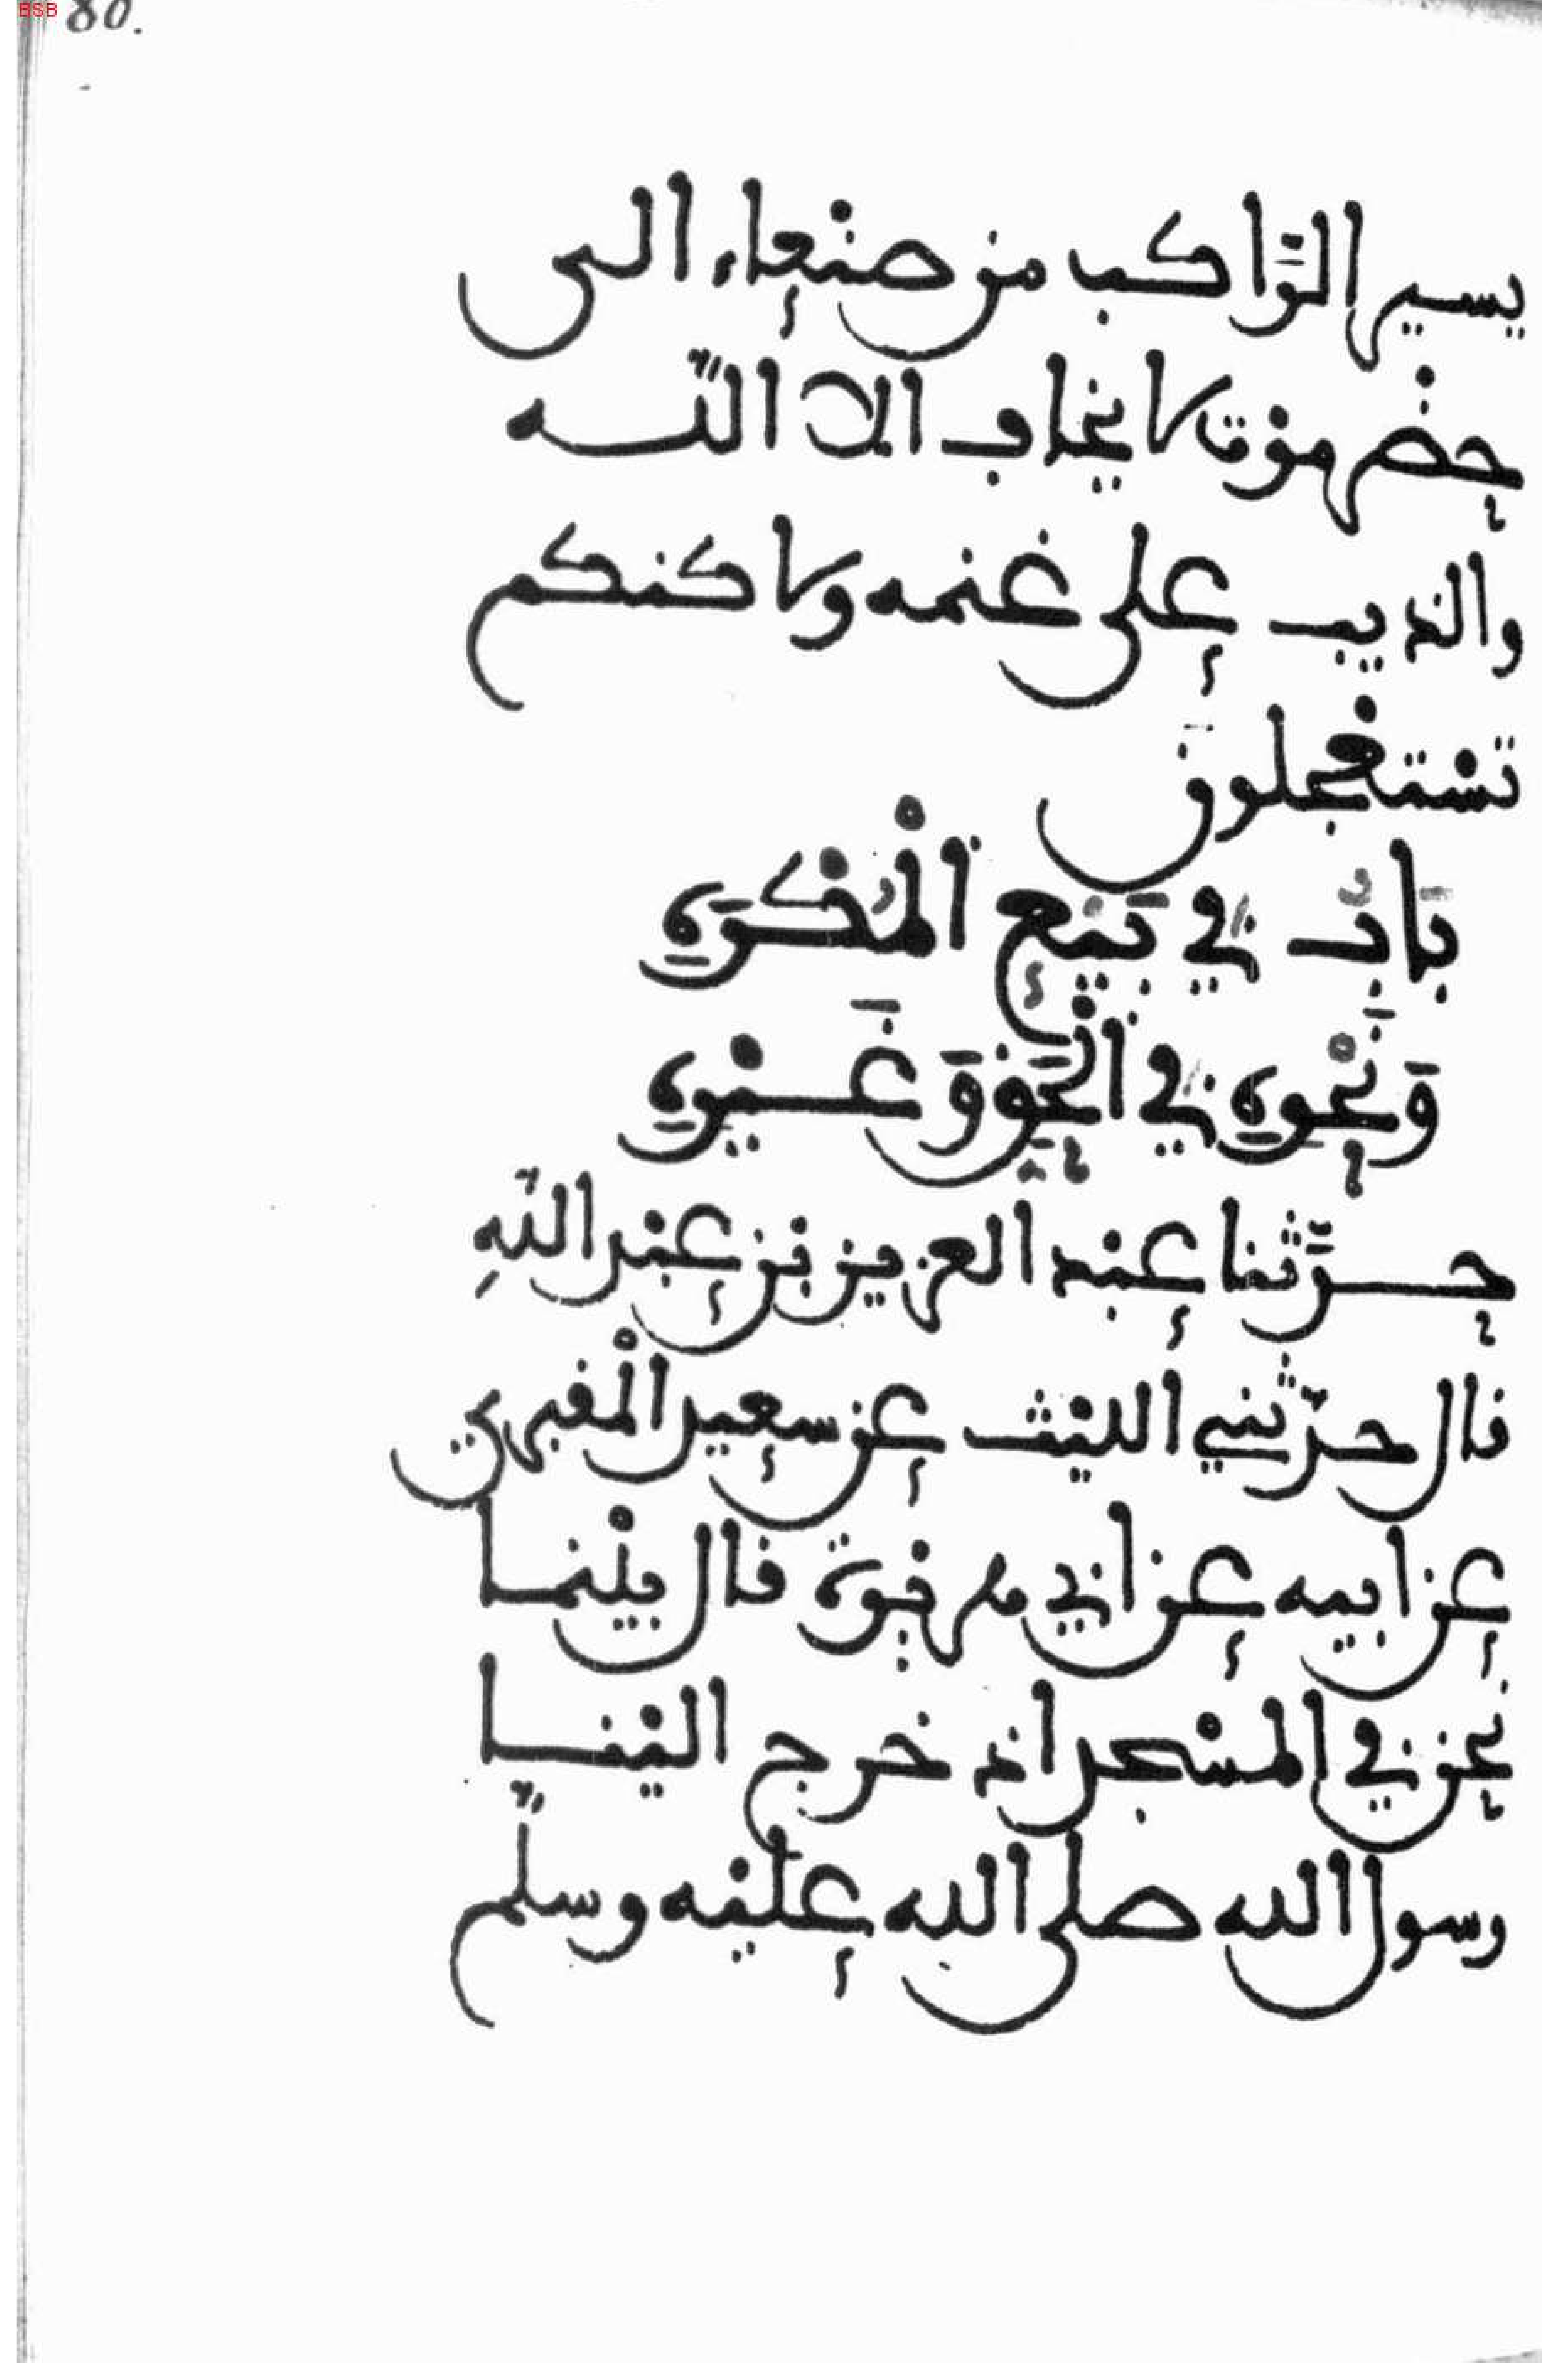 BSB
80.
يسير الرَّاكب من صنْعاء الى
حضْرموْت لا يخاف الا اللّه
والذيب على غنمه ولاكنكم
تسْتعْجلون
بَابٌ فِي بَيْعِ الْمُكْرَهِ
وَنَحْوِهِ فِي الْحَقِّ وَغَيْرِهِ
حدَّثنا عبْد العزيز بن عبْد اللّهِ
قال حدّثني الليْث عن سعيد الْمقبري
عن ابيه عن ابي هريْرة قال بيْنما
نحن في المسْجد اذ خرج اليْنا
رسول الله صلى الله عليْه وسلّم